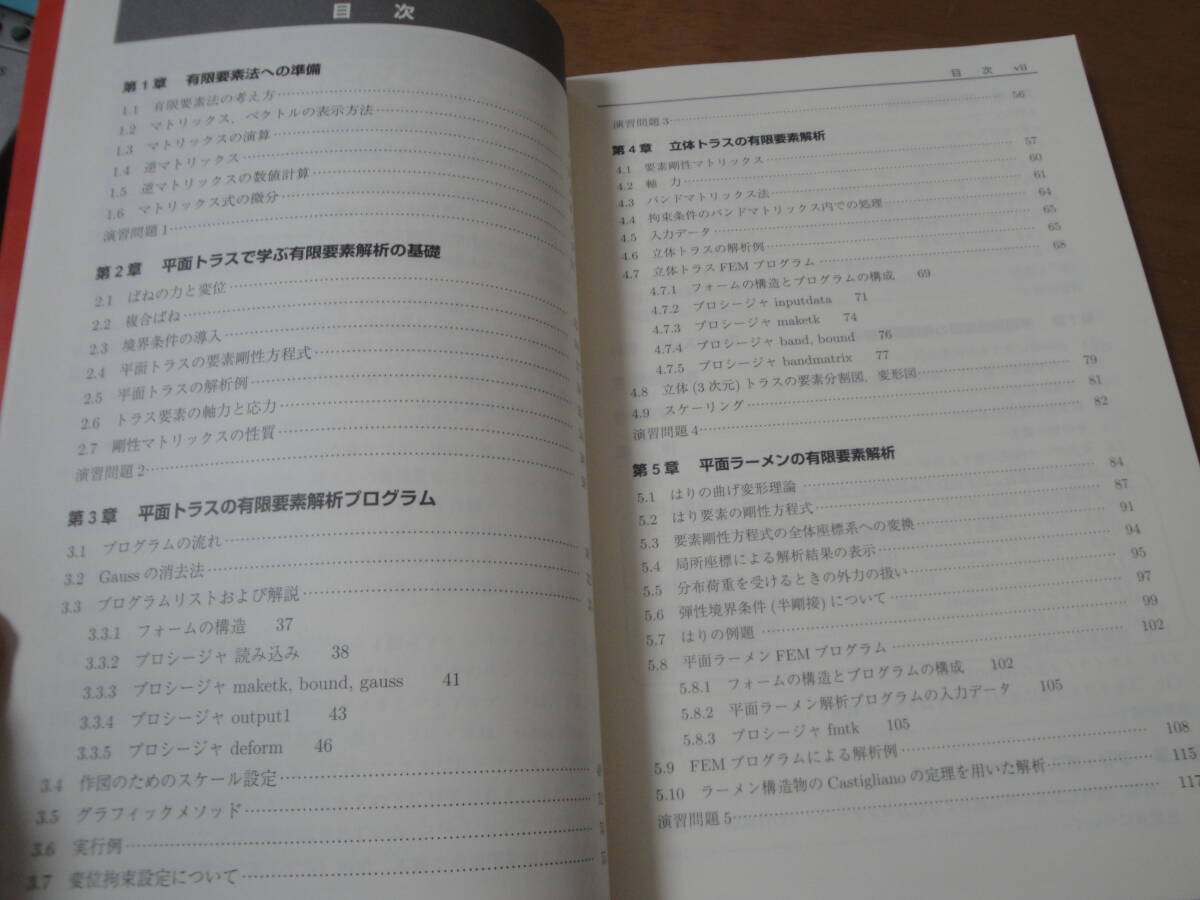 目 次
第1章 有限要素法への準備
1.1 有限要素法の考え方
1.2 マトリックス、ベクトルの表示方法
1.3 マトリックスの演算
1.4 逆マトリックス
1.5 逆マトリックスの数値計算
1.6 マトリックス式の微分
演習問題1
第2章 平面トラスで学ぶ有限要素解析の基礎
2.1 ばねの力と変位
2.2 複合ばね
2.3 境界条件の導入
2.4 平面トラスの要素剛性方程式
2.5 平面トラスの解析例
2.6 トラス要素の軸力と応力
2.7 剛性マトリックスの性質
演習問題2
第3章 平面トラスの有限要素解析プログラム
3.1 プログラムの流れ
3.2 Gaussの消去法
3.3 プログラムリストおよび解説
3.3.1 フォームの構造 37
3.3.2 プロシージャ 読み込み 38
3.3.3 プロシージャ maketk, bound, gauss 41
3.3.4 プロシージャ output1 43
3.3.5 プロシージャ deform 46
3.4 作図のためのスケール設定
3.5 グラフィックメソッド
3.6 実行例
3.7 変位拘束設定について
目 次 vii
演習問題3 56
第4章 立体トラスの有限要素解析
4.1 要素剛性マトリックス 57
4.2 軸 力 60
4.3 バンドマトリックス法 61
4.4 拘束条件のバンドマトリックス内での処理 64
4.5 入力データ 65
4.6 立体トラスの解析例 65
4.7 立体トラスFEMプログラム 68
4.7.1 フォームの構造とプログラムの構成 69
4.7.2 プロシージャ inputdata 71
4.7.3 プロシージャ maketk 74
4.7.4 プロシージャ band, bound 76
4.7.5 プロシージャ bandmatrix 77
4.8 立体(3次元)トラスの要素分割図、変形図 79
4.9 スケーリング 81
演習問題4 82
第5章 平面ラーメンの有限要素解析
5.1 はりの曲げ変形理論 84
5.2 はり要素の剛性方程式 87
5.3 要素剛性方程式の全体座標系への変換 91
5.4 局所座標による解析結果の表示 94
5.5 分布荷重を受けるときの外力の扱い 95
5.6 弾性境界条件(半剛接)について 97
5.7 はりの例題 99
5.8 平面ラーメンFEMプログラム 102
5.8.1 フォームの構造とプログラムの構成 102
5.8.2 平面ラーメン解析プログラムの入力データ 105
5.8.3 プロシージャ fmtk 105
5.9 FEMプログラムによる解析例 108
5.10 ラーメン構造物のCastiglianoの定理を用いた解析 115
演習問題5 117